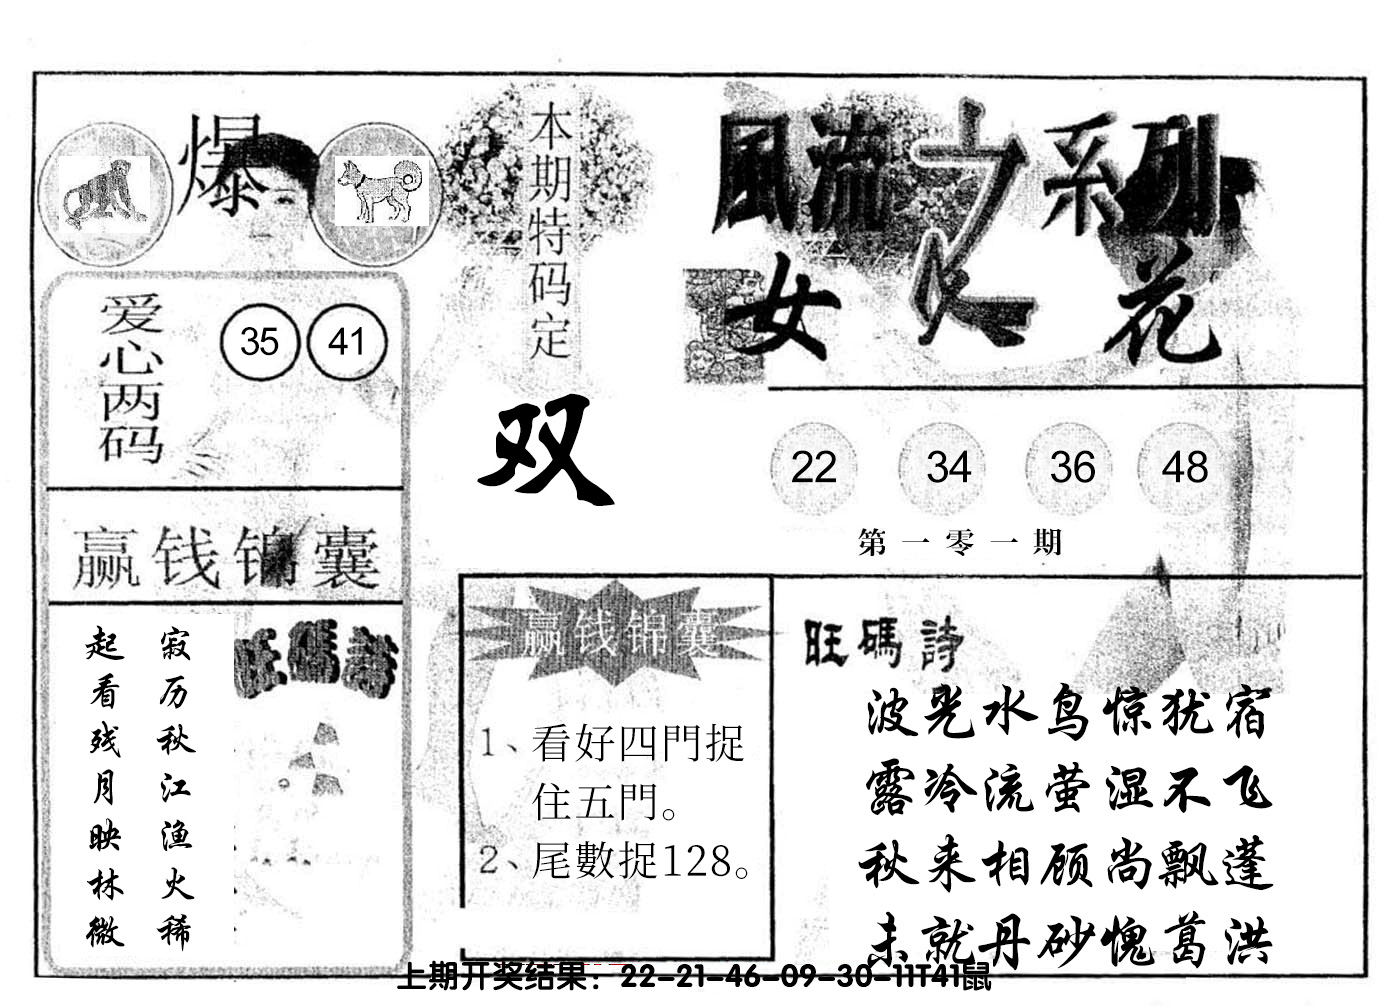 爆
本期特码定
双
風流之系列
女人花
爱心两码
35 41
22 34 36 48
第一零一期
赢钱锦囊
寂历秋江渔火稀
起看残月映林微
旺碼詩
赢钱锦囊
1、看好四門捉
住五門。
2、尾數捉128。
旺碼詩
波光水鸟惊犹宿
露冷流萤湿不飞
秋来相顾尚飘蓬
未就丹砂愧葛洪
上期开奖结果：22-21-46-09-30-11T41鼠